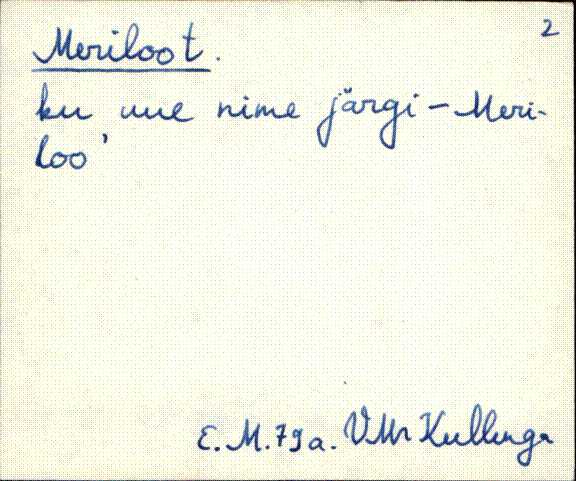 2
Meriloot.
ku uue nime järgi – Meri-
loo'
E. M. 79 a. VMr Kullenga